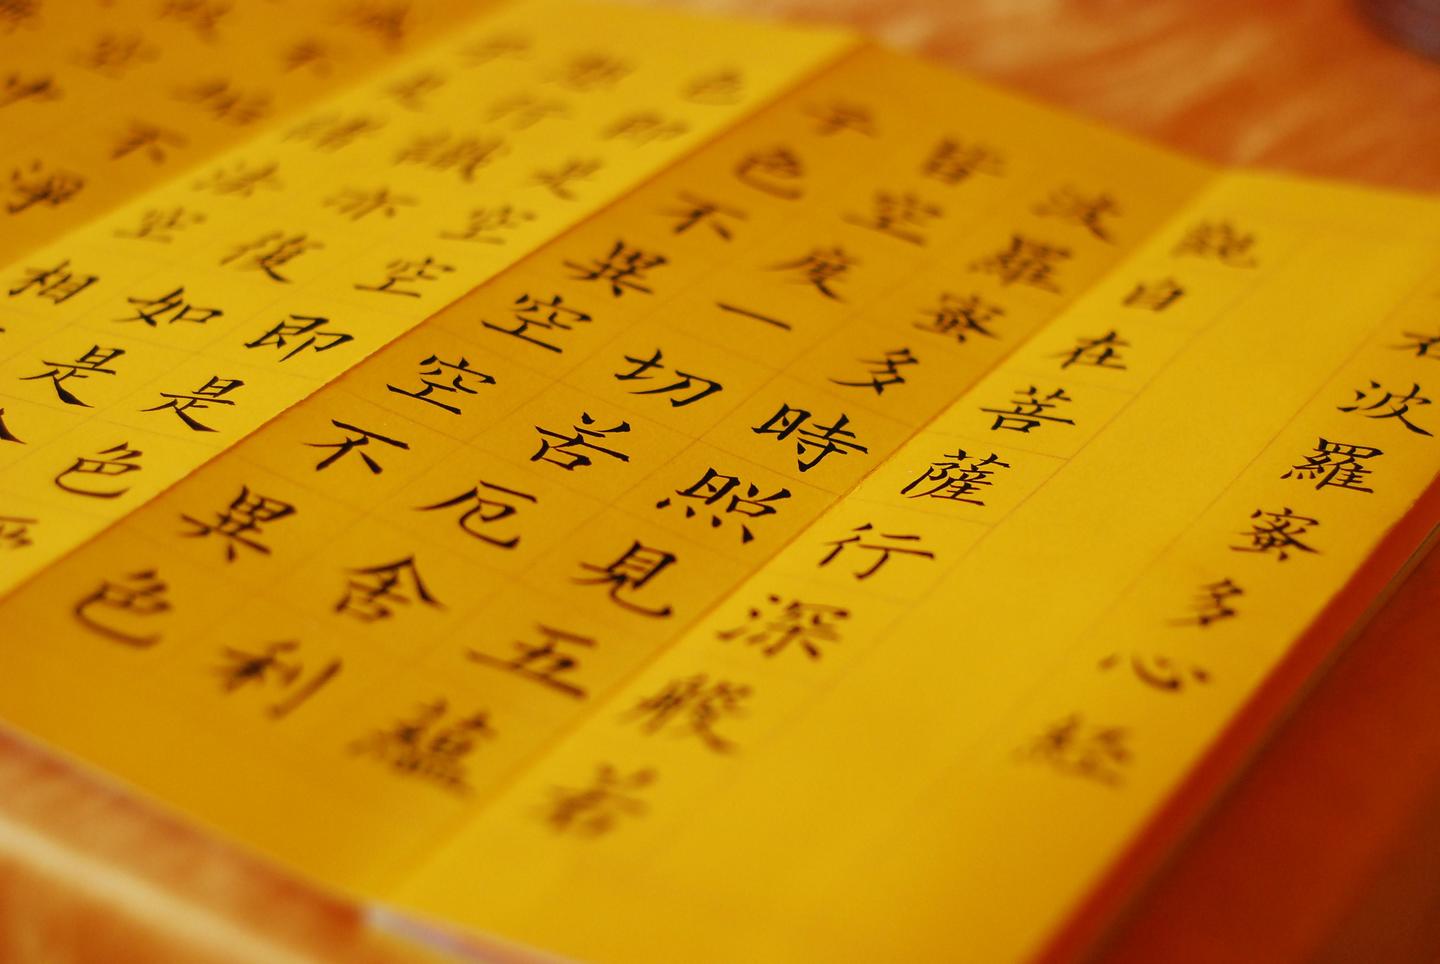 若波羅蜜多心經
觀自在菩薩行深般若
波羅蜜多時照見五蘊
皆空度一切苦厄舍利
子色不異空空不異色
色即是空空即是色受
想行識亦復如是
子是諸法空相
滅不垢不淨
故空中